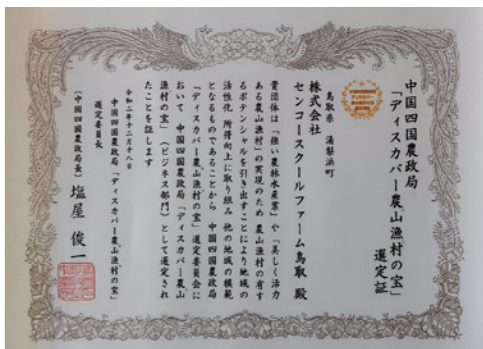 中国四国農政局
「ディスカバー農山漁村の宝」
選定証
鳥取県 湯梨浜町
株式会社
センコースクールファーム鳥取 殿
貴団体は「強い農林水産業」や「美しく活力
ある農山漁村」の実現のため 農山漁村の有す
るポテンシャルを引き出すことにより地域の
活性化 所得向上に取り組み 他の地域の模範
となるものであることから 中国四国農政局
「ディスカバー農山漁村の宝」選定委員会に
おいて 中国四国農政局「ディスカバー農山
漁村の宝」(ビジネス部門)として選定され
たことを証します
令和二年十二月十八日
中国四国農政局「ディスカバー農山漁村の宝」
選定委員長
(中国四国農政局長) 塩屋 俊一